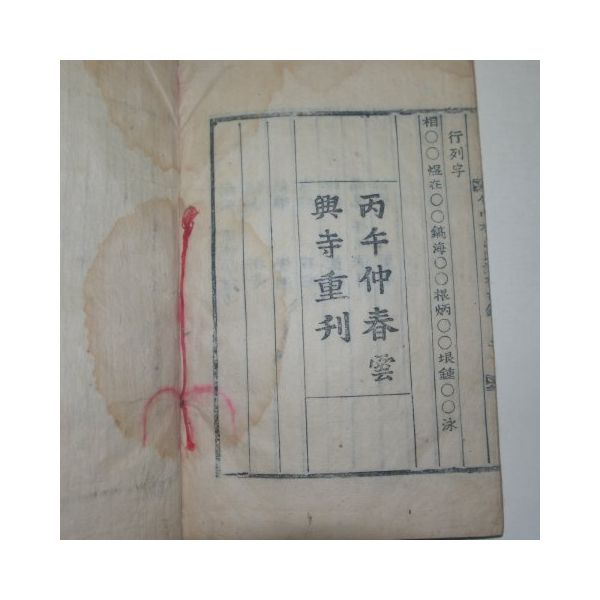 行列字
相○○煜在○○鎬海○○根炳○○垠鍾○○泳
丙午仲春雲
興寺重刋